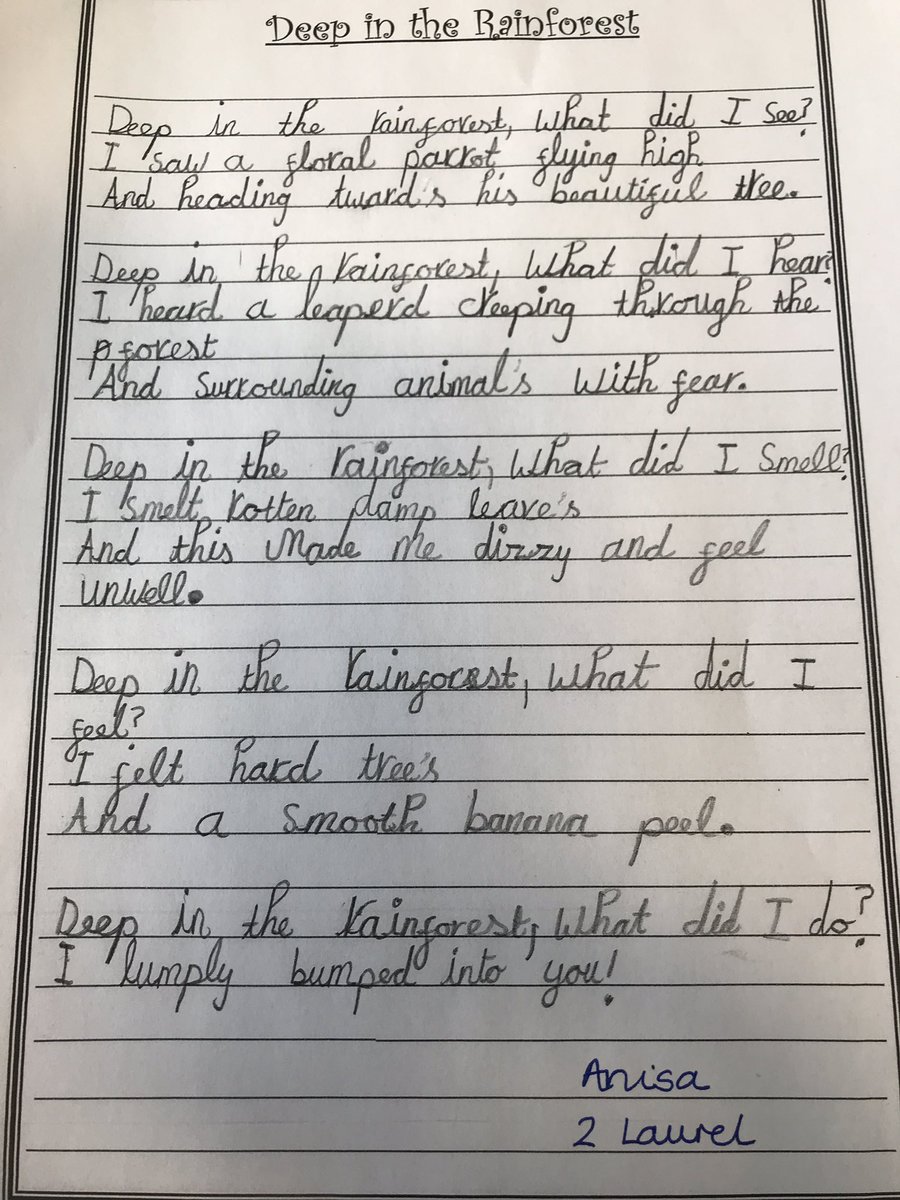 Deep in the Rainforest
Deep in the rainforest, What did I See?
I saw a floral parrot flying high
And heading tward's his beautiful tree.
Deep in the rainforest, What did I hear?
I heard a leaperd creeping through the
forest
And Surrounding animal's With fear.
Deep in the rainforest, What did I Smell?
I smelt rotten damp leave's
And this Made Me dizzy and feel
unwell.
Deep in the rainforest, What did I
feel?
I felt hard tree's
And a Smooth banana peel.
Deep in the rainforest, What did I do?
I lumply bumped into you!
Anisa
2 Laurel